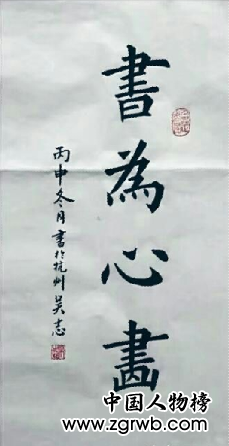 書為心畫
丙申冬月書於杭州吴志
中国人物榜
www.zgrwb.com